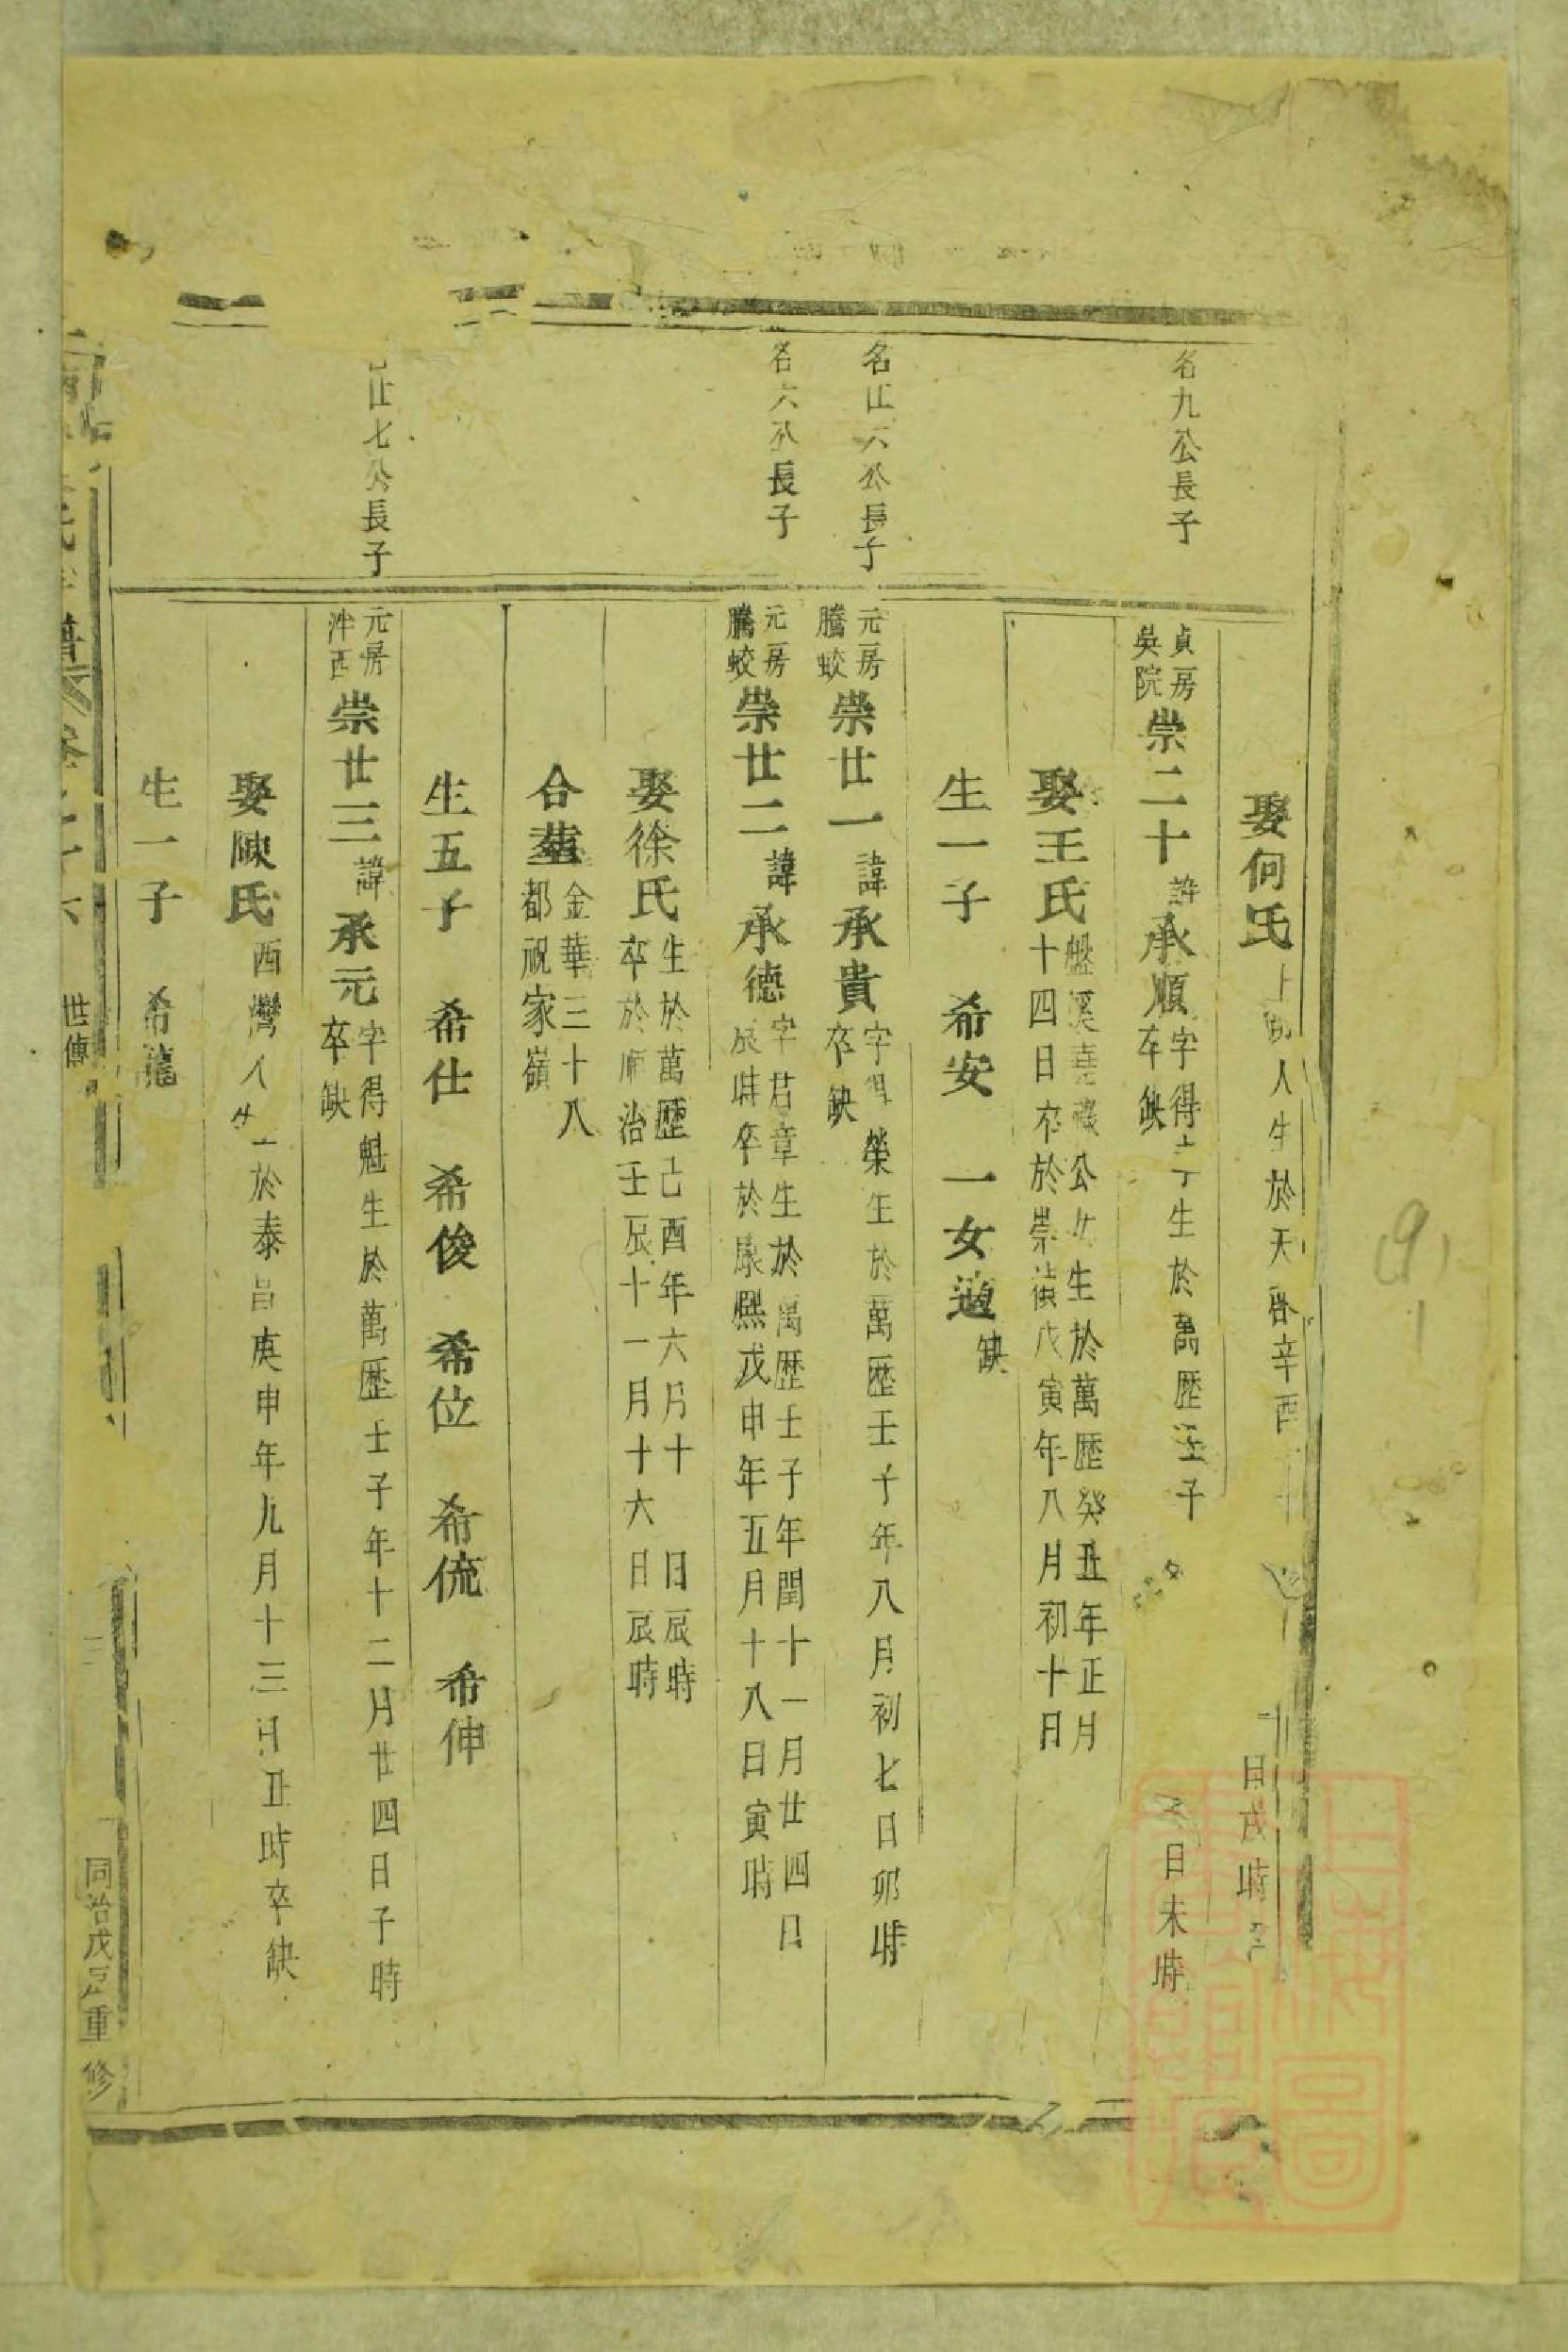 娶何氏
人生於天啓辛酉
日戌時
名九公長子
貞房
吳院
崇二十
諱
承順
字得
生於萬歷壬子
日未時
卒缺
娶王氏
盤溪
公女生於萬歷癸丑年正月
十四日卒於崇禎戊寅年八月初十日
生一子 希安 一女適
缺
名廿六公長子
元房
騰蛟
崇廿一
諱
承貴
字
榮生於萬歷壬子年八月初七日卯時
卒缺
名六公長子
元房
騰蛟
崇廿二
諱
承德
字君章生於萬歷壬子年閏十一月廿四日
辰時卒於康熙戊申年五月十八日寅時
娶徐氏
生於萬歷己酉年六月十 日辰時
卒於順治壬辰十一月十六日辰時
合塟
金華三十八
都祝家嶺
生五子 希仕 希俊 希位 希侃 希伸
廿七公長子
元房
泮西
崇廿三
諱
承元
字得魁生於萬歷壬子年十二月廿四日子時
卒缺
娶陳氏
西灣人生於泰昌庚申年九月十三日丑時卒缺
生一子 希龍
氏
譜
卷之
六
世傳
三
同治戊辰重修
上海圖
書館藏
(9)